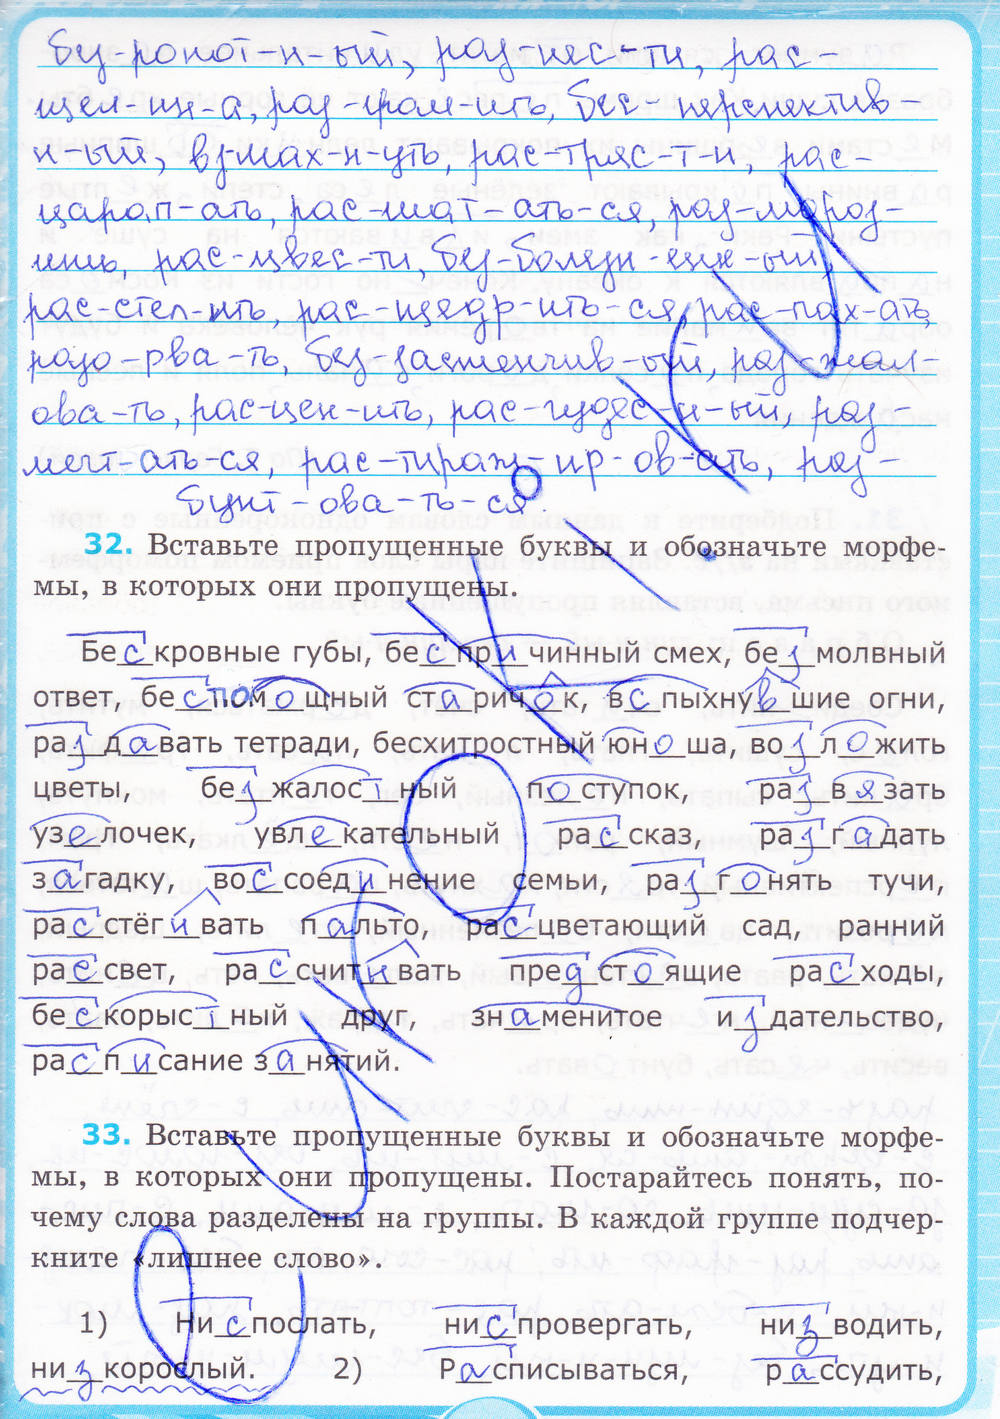 Без ропот-н-ый, раз-нес-ти, рас-
щел-ин-а, раз-гром-ить, бес-перспектив
н-ый, вз-мах-н-уть, рас-тряс-т-и, рас-
царап-ать, рас-шат-ать-ся, раз-мороз-
ить, рас-цвес-ти, без-болезн-енн-ый,
рас-стел-ить, рас-щедр-ить-ся, рас-пах-ать,
разо-рва-ть, без-застенчив-ый, раз-жал-
ова-ть, рас-цен-ить, рас-чудес-н-ый, раз
мечт-ать-ся, рас-тираж-ир-ов-ать, раз-
бунт-ова-ть-ся
32. Вставьте пропущенные буквы и обозначьте морфе-
мы, в которых они пропущены.
Бескровные губы, беспричинный смех, безмолвный
ответ беспомощный старичок, вспыхнувшие огни,
раздавать тетради, бесхитростный юноша, возложить
цветы, безжалостный поступок, развязать
узелочек, увлекательный рассказ, разгадать
загадку, воссоединение семьи, разгонять тучи,
расстёгивать пальто, расцветающий сад, ранний
рассвет, рассчитывать предстоящие расходы,
бескорыстный друг, знаменитое издательство,
расписание занятий.
33. Вставьте пропущенные буквы и обозначьте морфе-
мы, в которых они пропущены. Постарайтесь понять, по-
чему слова разделены на группы. В каждой группе подчер-
кните «лишнее слово».
1) Ниспослать, ниспровергать, низводить,
низкорослый. 2) Расписываться, рассудить,